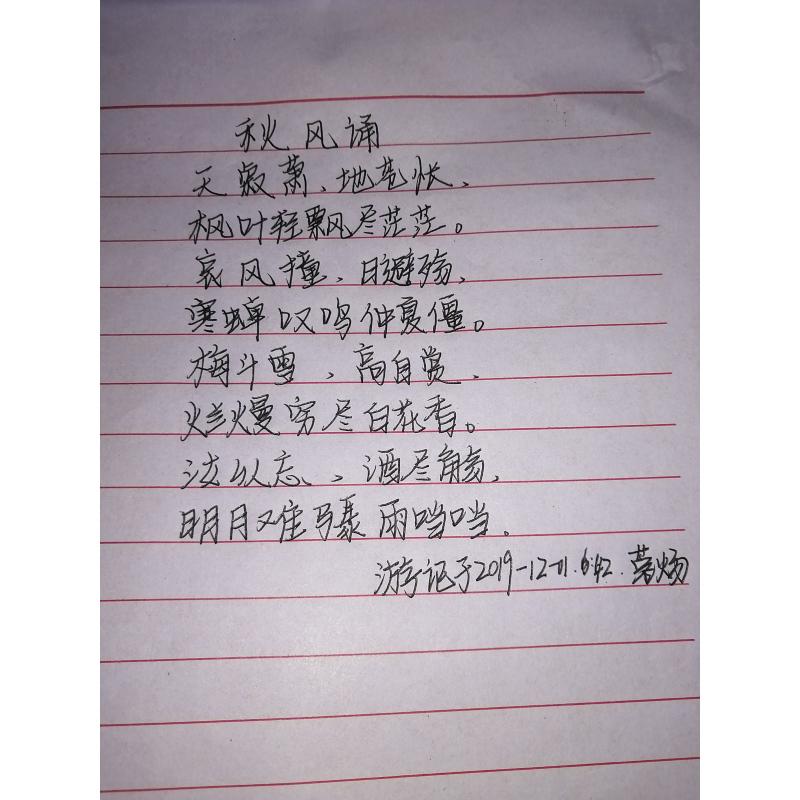 秋风诵
天寂萧、地苍怅、
枫叶轻飘尽茫茫。
哀风撞、日避殇、
寒蝉叹鸣仲夏僵。
梅斗雪、高自赏、
烂熳穷尽百花香。
法从忘、酒尽觞、
明月难骤雨咄咄.
游记于2019-12-11.6:42.